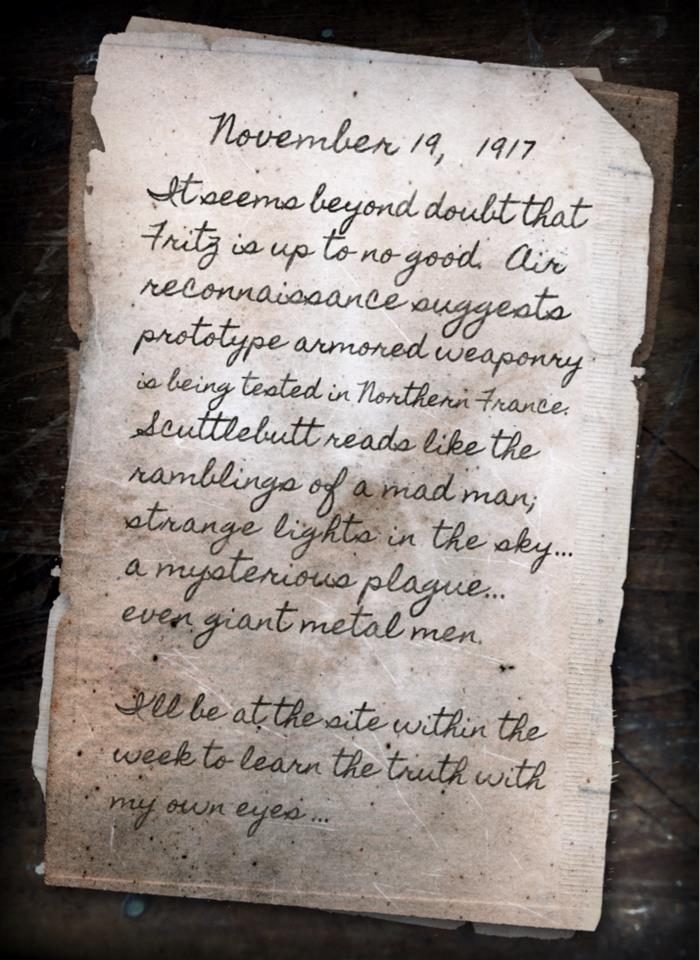 November 19, 1917
It seems beyond doubt that
Fritz is up to no good. Air
reconnaissance suggests
prototype armored weaponry
is being tested in Northern France.
Scuttlebutt reads like the
ramblings of a mad man;
strange lights in the sky...
a mysterious plague...
even giant metal men.
I'll be at the site within the
week to learn the truth with
my own eyes...